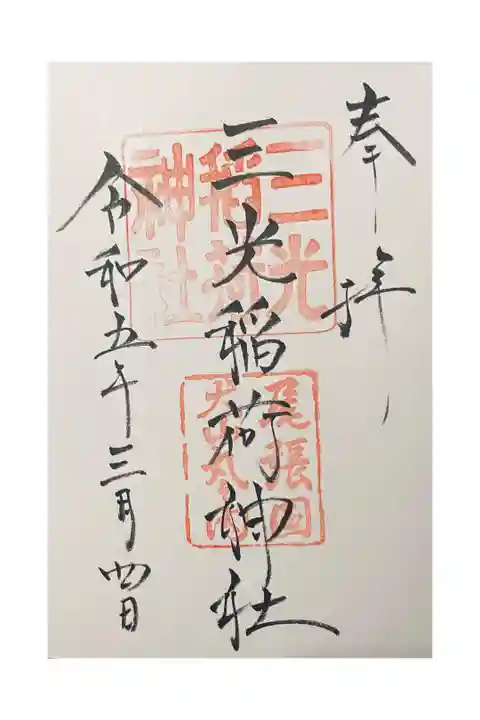 奉拝
三光稲荷神社
令和五年三月四日
三光
稲荷
神社
尾張国
犬山丸の内